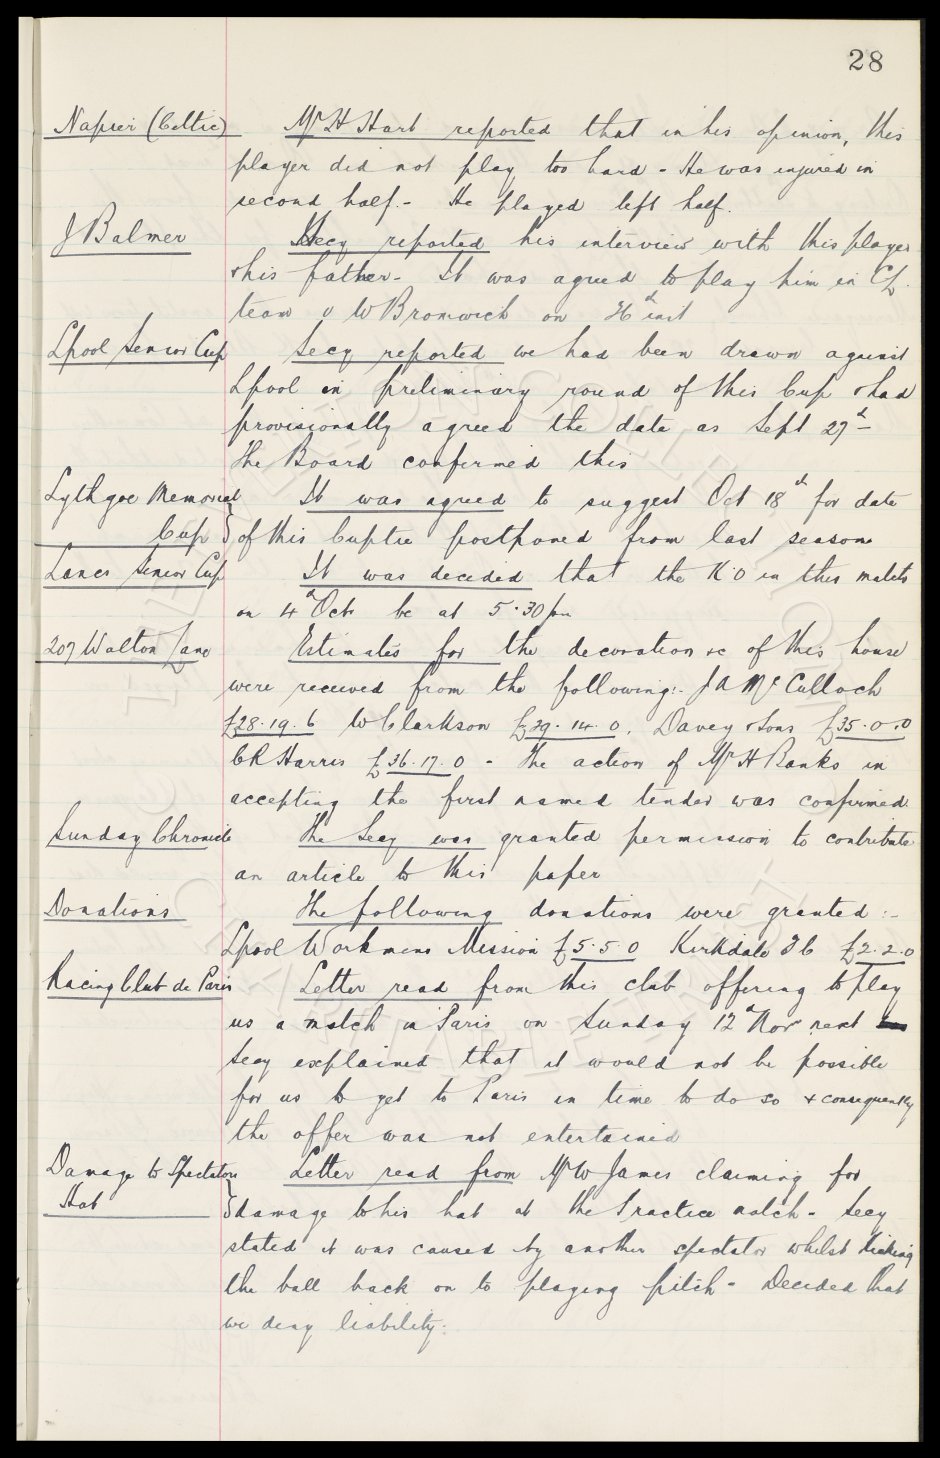 28
Napier (Celtic) Mr H Hart reported that in his opinion, this
player did not play too hard - He was injured in
second half. - He played left half.
J Balmer Secy reported his interview with this player
& his father - It was agreed to play him in CL
team v W Bromwich on 26th inst
Lpool Senior Cup Secy reported we had been drawn against
Lpool in preliminary round of this Cup & had
provisionally agreed the date as Sept 27th -
The Board confirmed this
Lythgoe Memorial It was agreed to suggest Oct 18th for date
Cup } of this Cuptie postponed from last season
Lancs Senior Cup It was decided that the K.O in this match
on 4th Octr be at 5.30 pm
207 Walton Lane Estimates for the decoration &c of this house
were received from the following:- J A McCulloch
£28.19.6 W Clarkson £29.14.0. Davey & Sons £35.0.0
C R Harris £36.17.0 - The action of Mr H Banks in
accepting the first named tender was confirmed.
Sunday Chronicle The Secy was granted permission to contribute
an article to this paper
Donations The following donations were granted :-
Lpool Workmens Mission £5.5.0 Kirkdale FC £2.2.0
Racing Club de Paris Letter read from this club offering to play
us a match in Paris on Sunday 12th Novr next
Secy explained that it would not be possible
for us to get to Paris in time to do so & consequently
the offer was not entertained
Damage to Spectators Letter read from Mr W James claiming for
Hat } damage to his hat at the Practice match - Secy
stated it was caused by another spectator whilst kicking
the ball back on to playing pitch - Decided that
we deny liability.